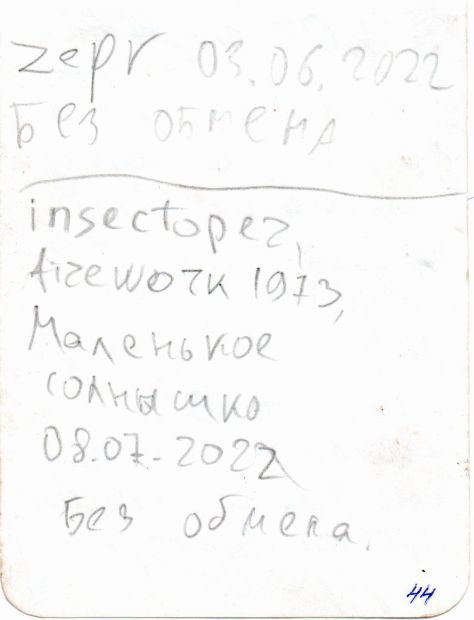 zepr 03.06.2022
Без обмена
insectoper,
firework 1973,
Маленькое
солнышко
08.07.2022
Без обмена.
44